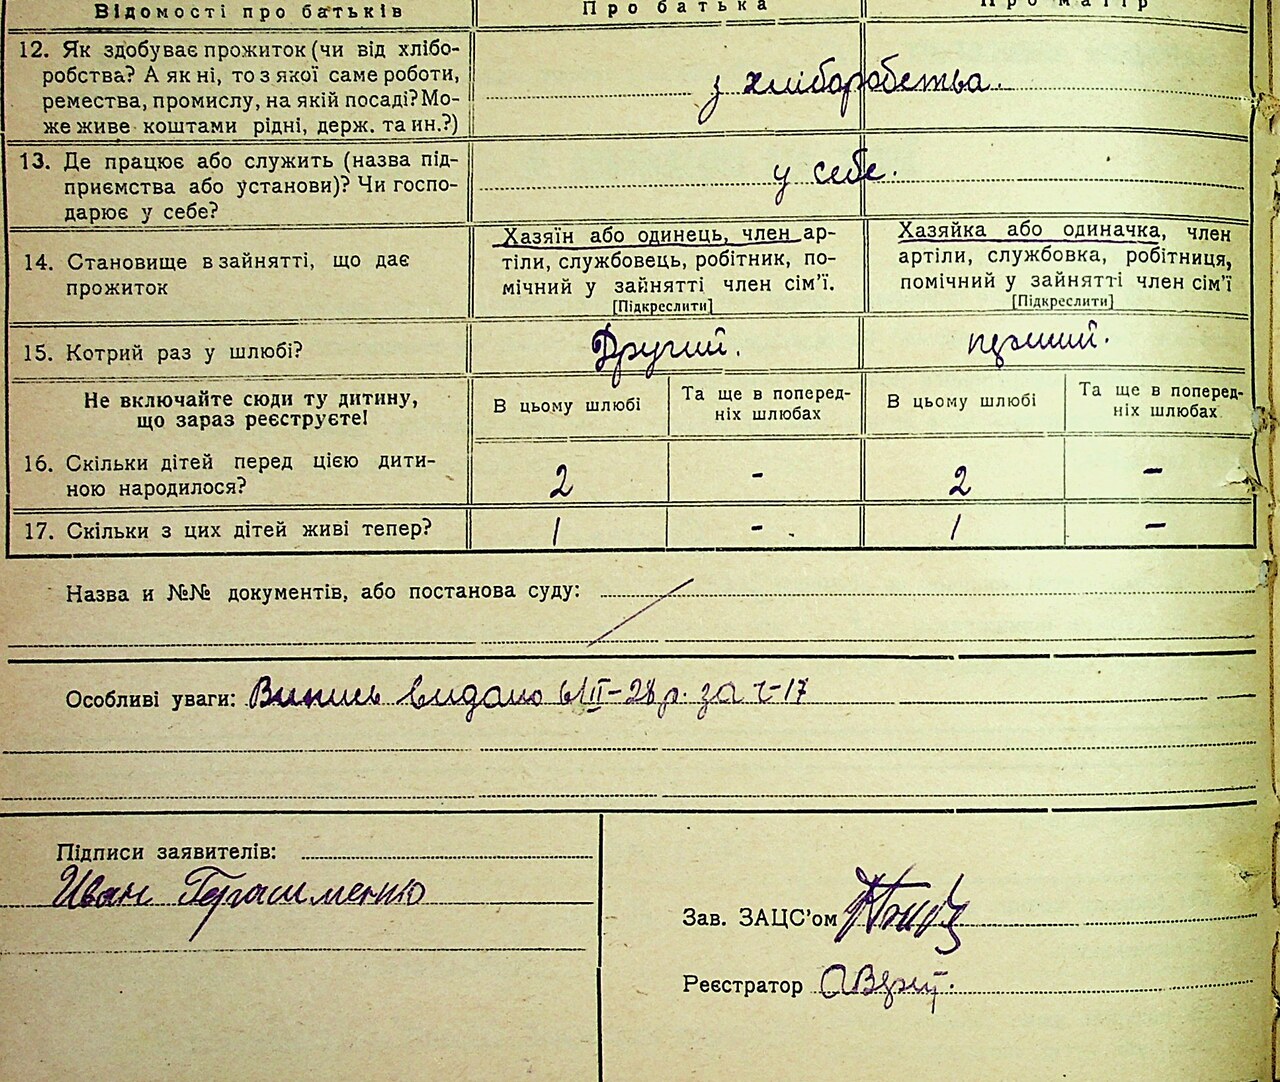 Відомості про батьків
Про батька
Про матір
12. Як здобуває прожиток (чи від хлібо-
робства? А як ні, то з якої саме роботи,
ремества, промислу, на якій посаді? Мо-
же живе коштами рідні, держ. та ин.?)
з хліборобства.
13. Де працює або служить (назва під-
приємства або установи)? Чи госпо-
дарює у себе?
у себе.
14. Становище в зайнятті, що дає
прожиток
Хазяїн або одинець, член ар-
тіли, службовець, робітник, по-
мічний у зайнятті член сім'ї.
[Підкреслити]
Хазяйка або одиначка, член
артіли, службовка, робітниця,
помічний у зайнятті член сім'ї
[Підкреслити]
15. Котрий раз у шлюбі?
Другий.
перший.
Не включайте сюди ту дитину,
що зараз реєструєте!
В цьому шлюбі
Та ще в поперед-
ніх шлюбах
В цьому шлюбі
Та ще в поперед-
ніх шлюбах
16. Скільки дітей перед цією дити-
ною народилося?
2
-
2
-
17. Скільки з цих дітей живі тепер?
1
-
1
-
Назва и №№ документів, або постанова суду:
Особливі уваги: Випись видано -28 р. за ч-17
Підписи заявителів:
Иван Герасименко
Зав. ЗАЦС'ом
Реєстратор